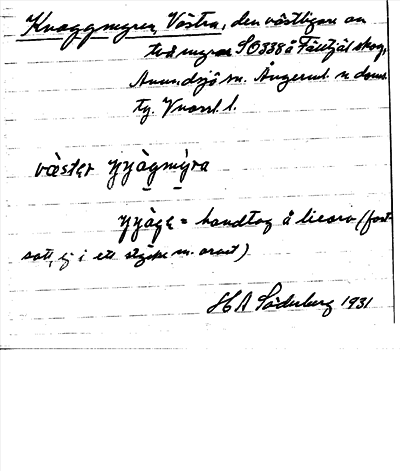 Knaggmyren, Västra, den västligare av
två myrar SO338 å Fälltjäl skog,
Anundsjö sn. Ångerml. n doms.
tg. Vnorrl. l.
väster ɲɲàgmýra
ɲɲàgɛ = handtag å lieorv (fast-
satt, ej i ett stycke m. orvet)
HA Söderberg 1931